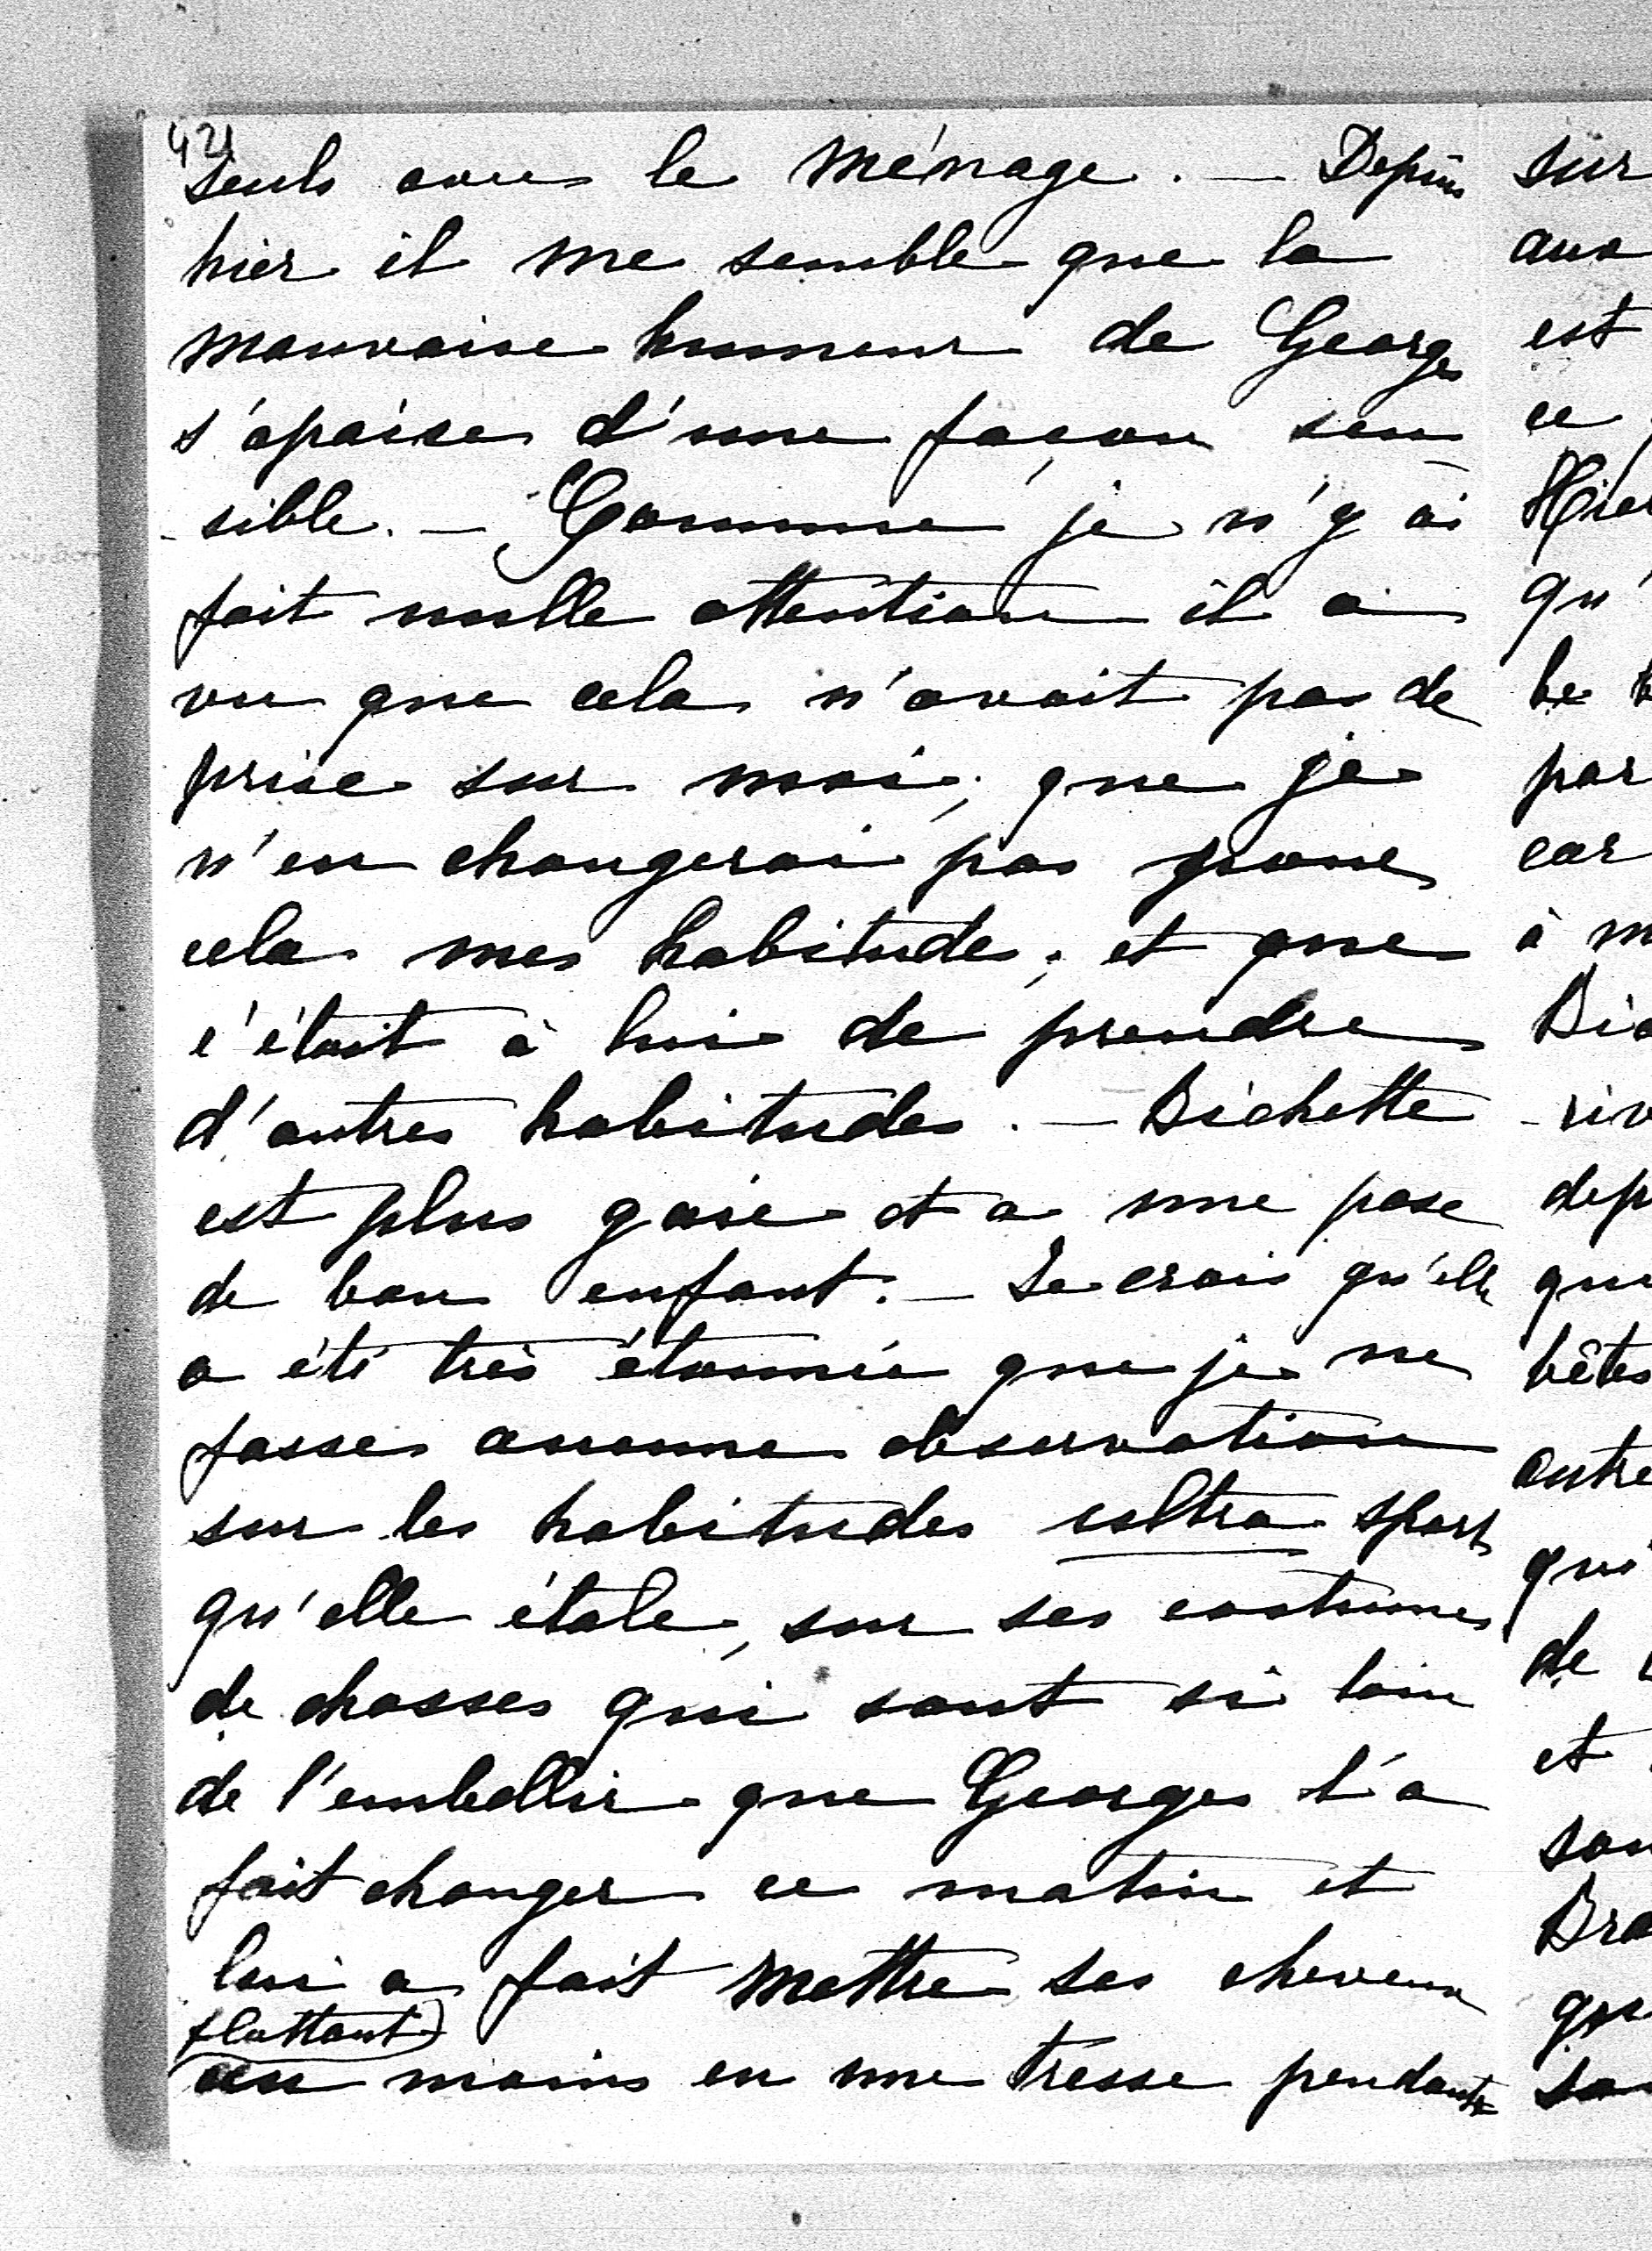 421
seuls avec le ménage. — Depuis
hier il me semble que la
mauvaise humeur de Georges
s'apaise d'une façon sen
-sible. — Comme je n'y ai
fait nulle attention il a
vu que cela n'avait pas de
prise sur moi; que je
n'en changerai pas pour
cela mes habitudes; et que
c'était à lui de prendre
d'autres habitudes. — Bichette
est plus gaie et a une pose
de bon enfant. — Je crois qu'elle
a été très étonnée que je ne
fasse aucune observation
sur les habitudes ultra sport
qu'elle étale, sur ses costumes
de chasses qui sont si loin
de l'embellir que Georges l'a
fait changer ce matin et
lui a fait mettre ses cheveux
flottant
au moins en une tresse pendante
sur
aux
est
ce
Hier
qu'
be
par
car
à m
Bic
-riv
dep
qu
bêtes
autre
qui
de
et
son
Bra
qu
sa